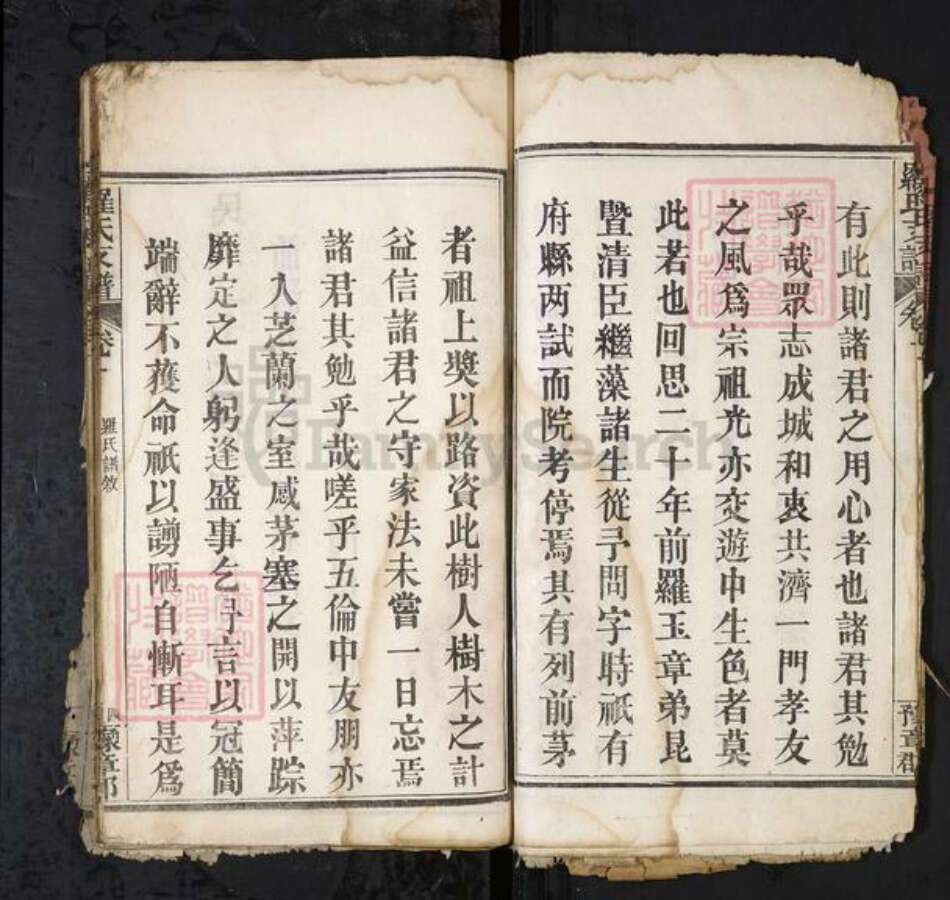 有此則諸君之用心者也諸君其勉
乎哉眾志成城和衷共濟一門孝友
之風為宗祖光亦交遊中生色者莫
此若也回思二十年前羅玉章弟昆
暨清臣繼藻諸生從予問字時祇有
府縣两試而院考停焉其有列前茅
者祖上獎以路資此樹人樹木之計
益信諸君之守家法未嘗一日忘焉
諸君其勉乎哉嗟乎五倫中友朋亦
一入芝蘭之室感茅塞之開以萍踪
靡定之人躬逢盛事乞予言以冠簡
端辭不獲命祇以謭陋自慚耳是為
羅氏支譜
卷一
羅氏譜敘
豫章郡